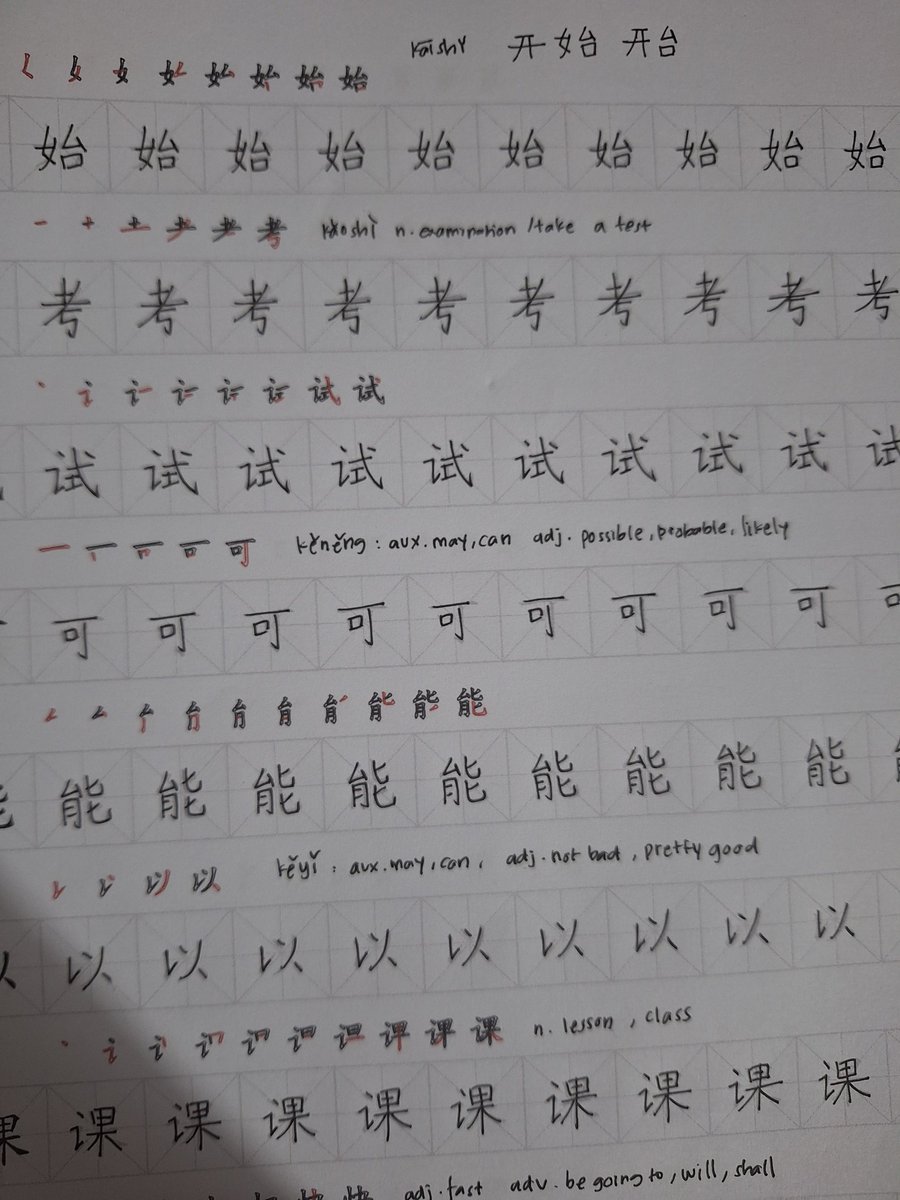 kāishǐ 开始 开台
始 始 始 始 始 始 始 始 始 始
考 kǎoshì n. examination / take a test
考 考 考 考 考 考 考 考 考 考
试 试
试 试 试 试 试 试 试 试 试 试
可 kěnéng : aux. may, can adj. possible, probable, likely
可 可 可 可 可 可 可 可 可 可
能
能 能 能 能 能 能 能 能 能 能
以 kěyǐ : aux. may, can, adj. not bad, pretty good
以 以 以 以 以 以 以 以 以 以
课 n. lesson, class
课 课 课 课 课 课 课 课 课 课
adj. fast adv. be going to, will, shall